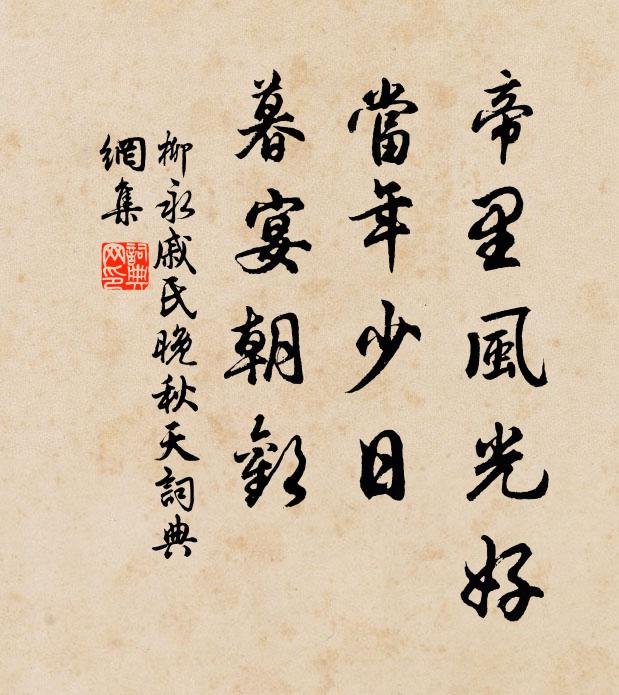 帝里風光好
當年少日
暮宴朝歡
柳永戚氏晚秋天詞典
網集
詞典
网印